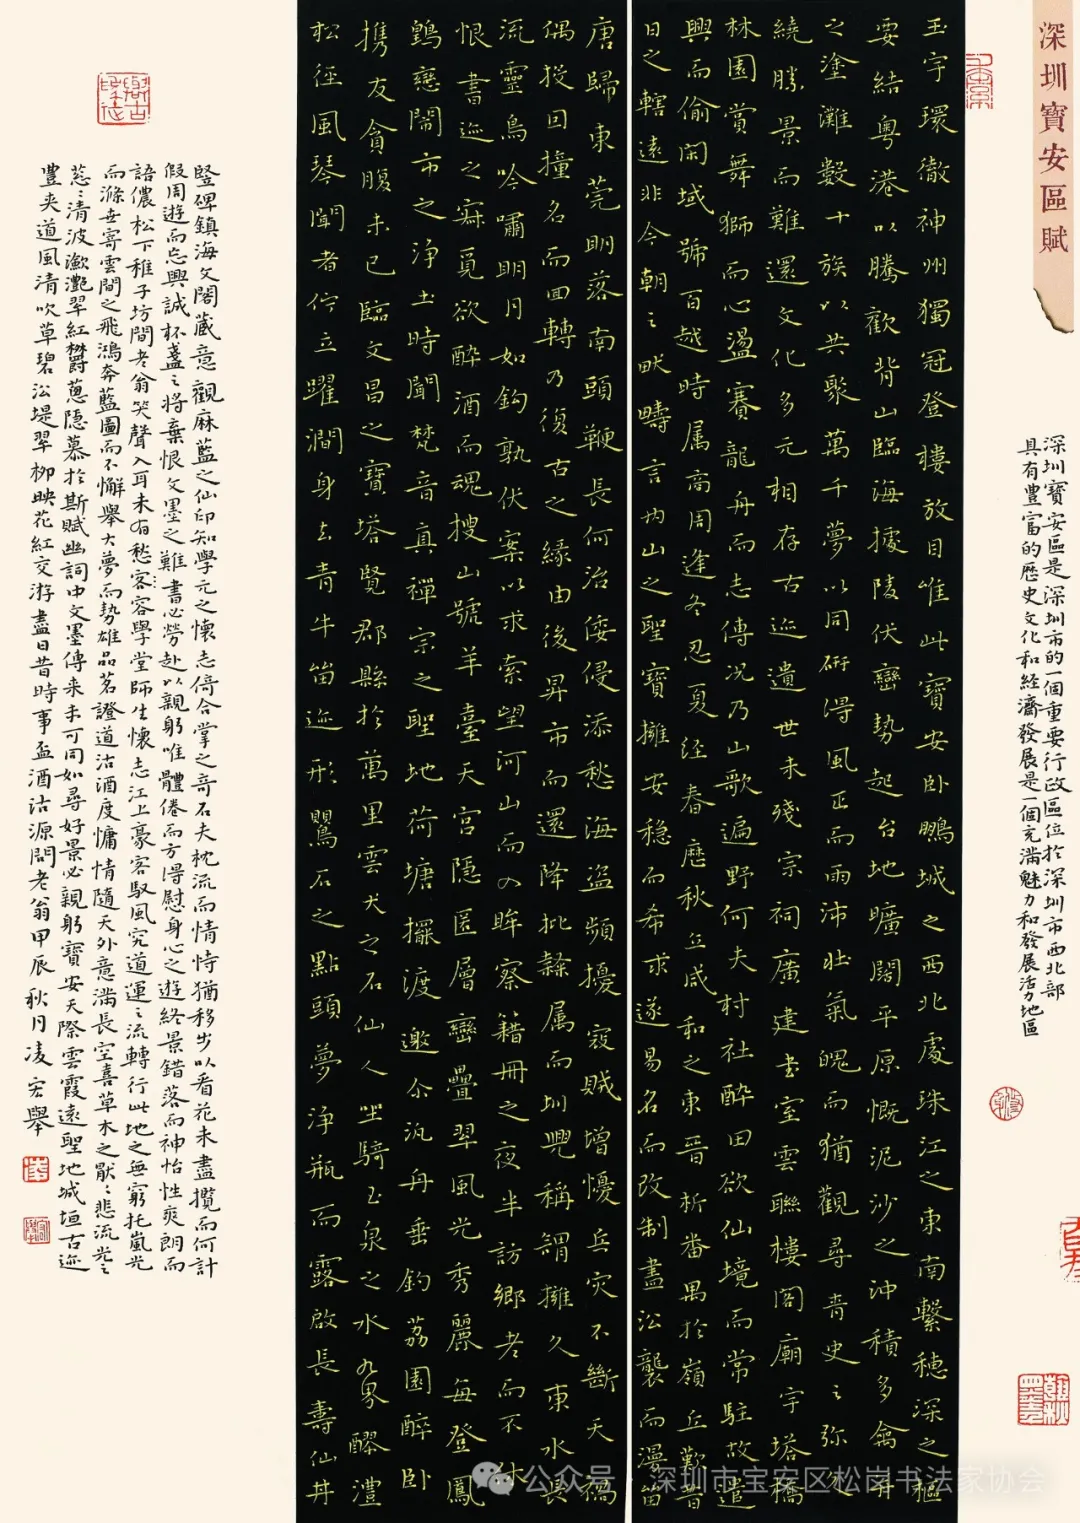 深圳寶安區賦
深圳寶安區是深圳市的一個重要行政區位於深圳市西北部
具有豐富的歷史文化和經濟發展是一個充滿魅力和發展活力地區
玉宇環徹神州獨冠登樓放目唯此寶安卧鵬城之西北處珠江之東南繫穗深之樞
要結粵港以騰歡背山臨海據陵伏巒勢起台地曠闊平原慨泥沙之沖積多禽
之塗灘數十族以共聚萬千夢以同研得風正而雨沛壯氣魄而猶觀尋青史之弥
繞勝景而難還文化多元相存古迹遺世未殘宗祠廣建書室雲聯樓閣廟宇塔橋
林園賞舞獅而心盪賽龍舟而志傳况乃山歌遍野何夫村社醉田欲仙境而常駐故遣
興而偷閑域號百越時属商周逢冬忍夏经春歷秋立咸和之東晋析番禺於嶺丘歎昔
日之轄遠非今朝之畎疇言内山之聖寶擁安穩而希求遂易名而改制盡沿襲而漫留
唐歸東莞明落南頭鞭長何治倭侵添愁海盗頻擾寇賊增憂兵灾不斷天禍
偶投回撞名而回轉乃復古之緣由後昇市而還降批隸属而圳興稱謂擁久東水長
流靈鳥吟嘯明月如鈎孰伏案以求索望河山而凹眸察籍冊之夜半訪鄉老而不休
恨書迹之寐覓欲醉酒而魂搜山號羊臺天宮隱匿層巒疊翠風光秀麗每登鳳
鶴戀鬧市之净土時聞梵音真禪宗之聖地荷塘擺渡邀尒汎舟垂釣荔園醉卧
携友貪腹未已臨文昌之寶塔覽郡縣於萬里雲犬之石仙人坐騎玉泉之水 界醪澧
松徑風琴聞者佇立躍澗身去青牛笛迹形鷺石之點頭夢净瓶而露啟長壽仙井
豎碑鎮海文閣藏意觀麻藍之仙印知學元之懷志倚合掌之奇石夫枕流而情恃猶移步以看花未盡攬而何計
假周遊而忘興誠杯盞之將棄恨文墨之難書必勞赴以親躬唯體倦而方得慰身心之遊終景錯落而神怡性爽朗而
語儂松下稚子坊間老翁笑聲入耳未有愁容客學堂師生懷志江上豪客馭風究道運之流轉行此地之無窮托嵐光
而滌世寄雲間之飛鴻奔藍圖而不懈舉大夢而勢雄品茗證道沽酒度慵情隨天外意滿長空喜草木之猒悲流光之
清波瀲灩翠紅鬱蔥隱慕於斯賦幽詞中文墨傳来未可同如尋好景必親躬寶安天際雲霞遠聖地城垣古迹
豐夹道風清吹草碧沿堤翠柳映花紅交游盡日昔時事盃酒沽源問老翁甲辰秋月凌宏舉
公众号·深圳市宝安区松岗书法家协会